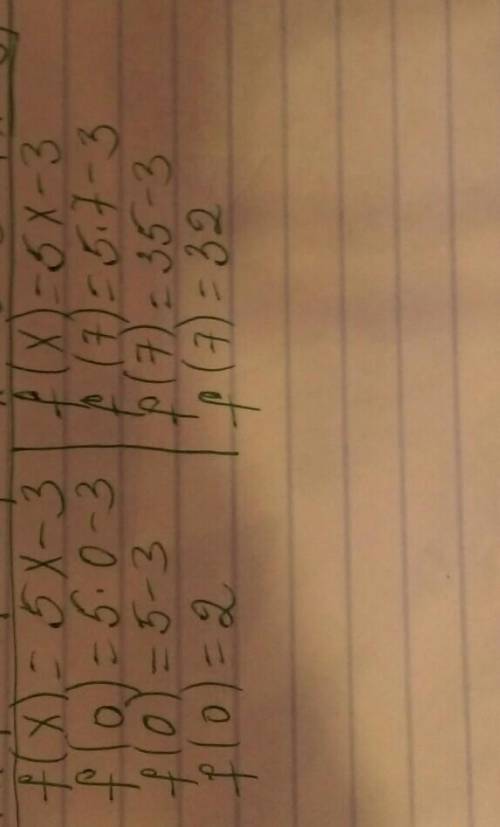 f(x) = 5x - 3
f(0) = 5·0 - 3
f(0) = 5 - 3
f(0) = 2
f(x) = 5x - 3
f(7) = 5·7 - 3
f(7) = 35 - 3
f(7) = 32